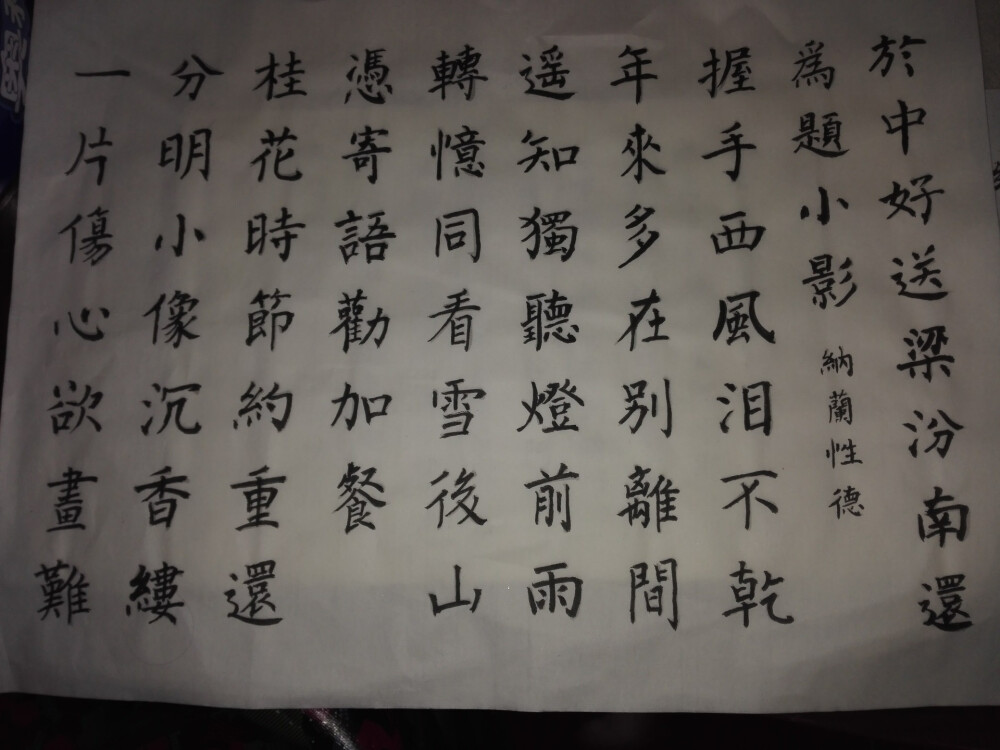 於中好送梁汾南還
為題小影
納蘭性德
握手西風泪不乾
年來多在別離間
遥知獨聽燈前雨
轉憶同看雪後山
憑寄語勸加餐
桂花時節約重還
分明小像沉香縷
一片傷心欲畫難